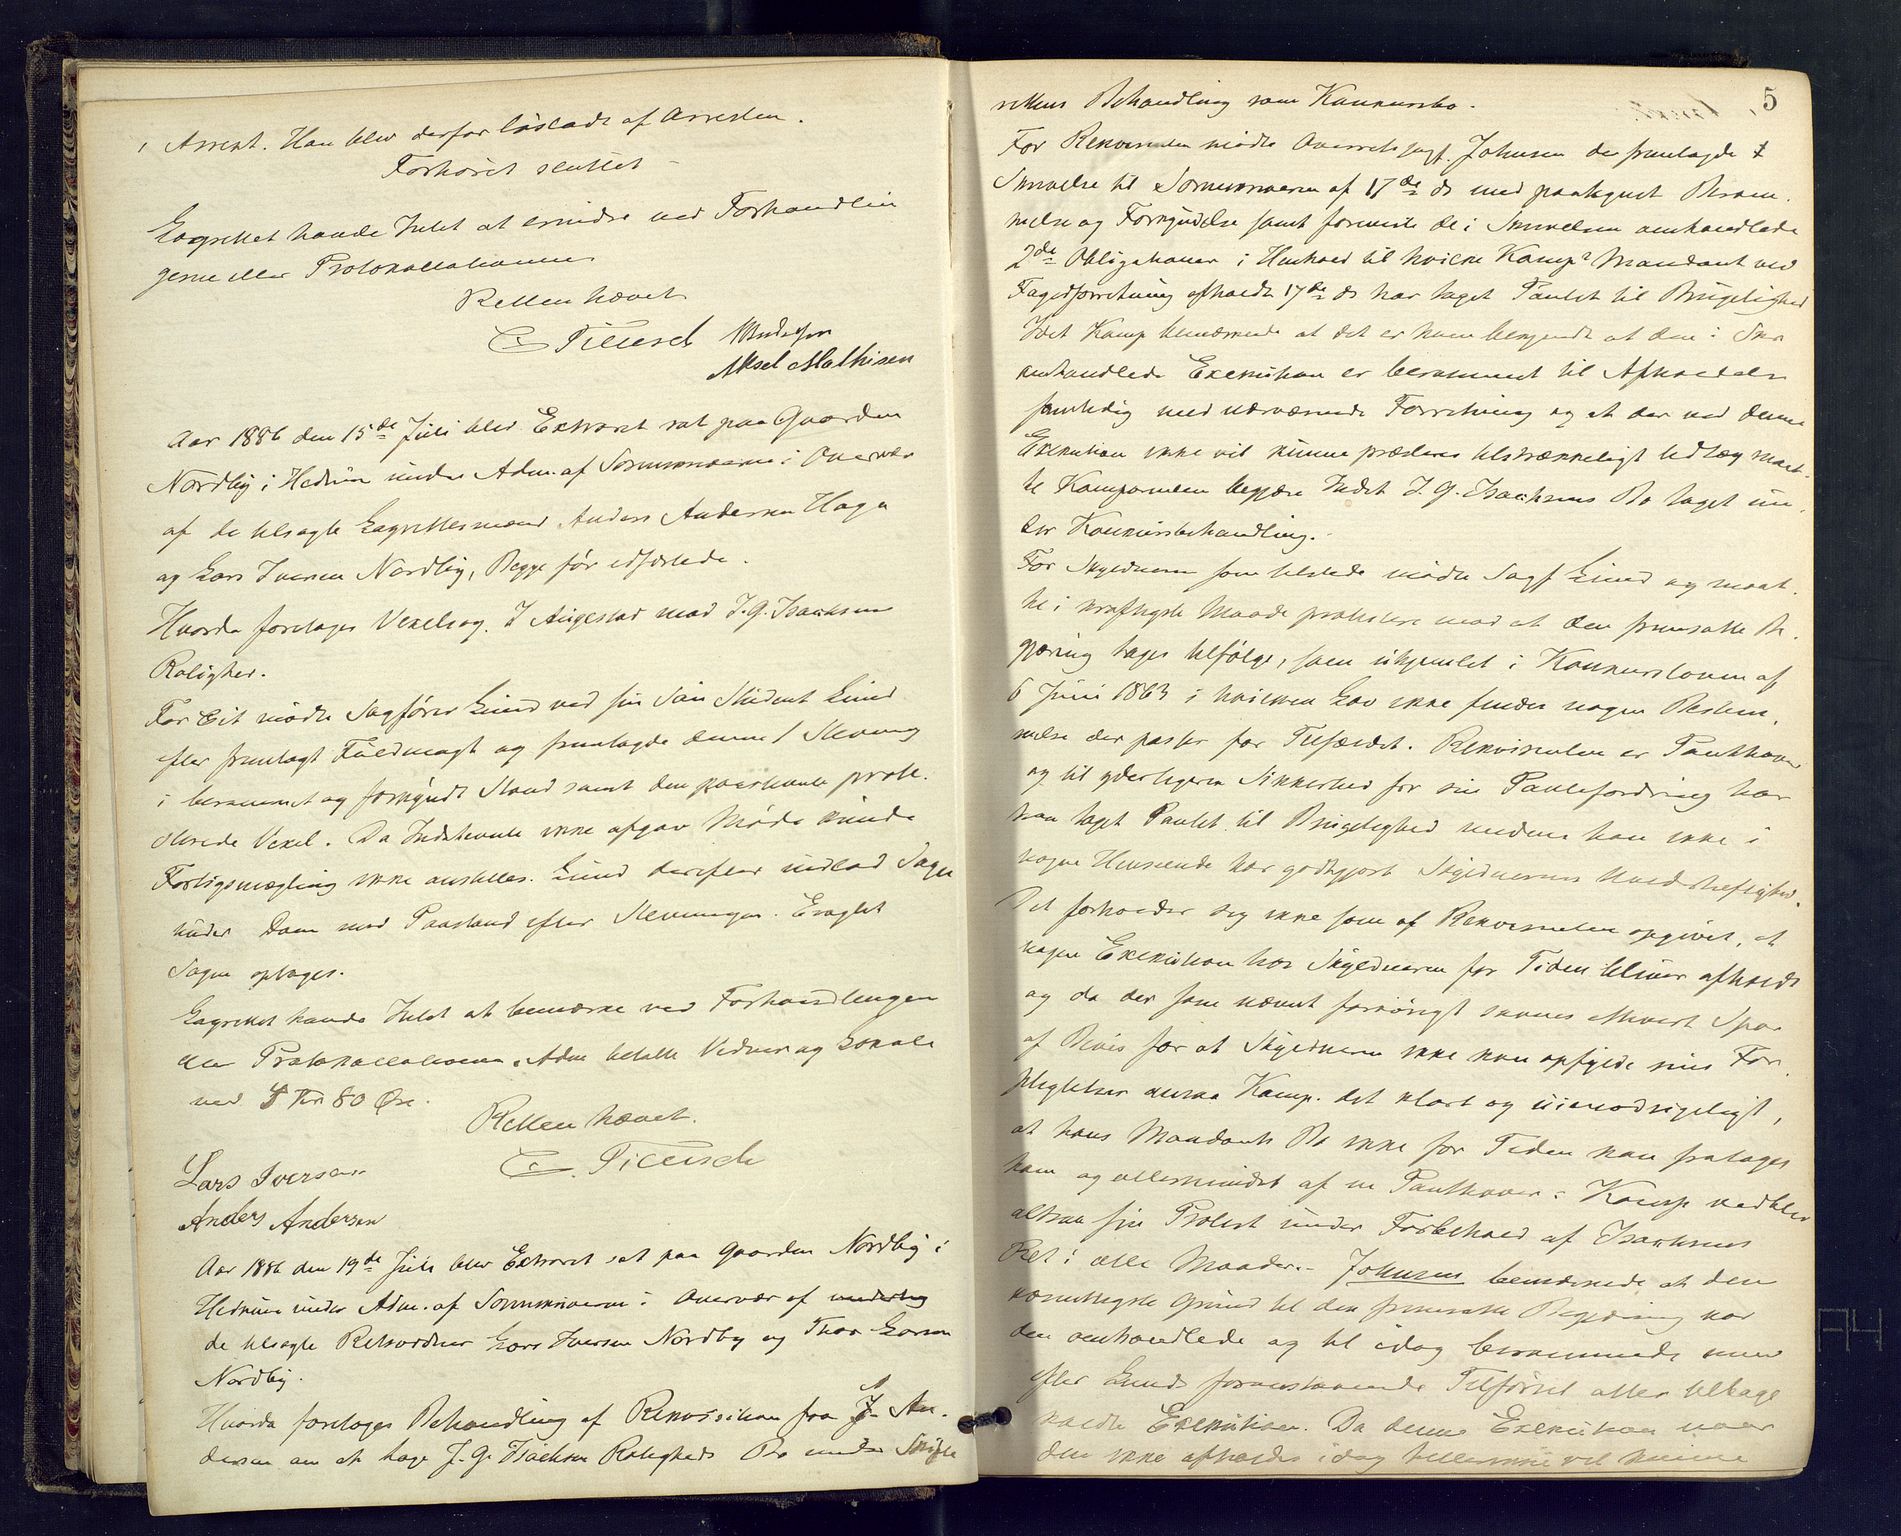 i Arrest. Han blev derfor løsladt af Arresten.
Forhøret sluttet
Lagrettet havde Intet at erindre ved Forhandlin
gerne eller Protokollationen
Retten hævet
C Pleusch Andersen
Aksel Mathisen
Aar 1886 den 15de Juli blev Extraret sat paa Gaarden
Nordby i Hedrum under Adm. af Sorenskriveren i Overvær
af de tilsagte Lagrettesmænd Anders Andersen Haga
og Lars Iversen Nordby, Begge før edfæstede.
Hvorda foretoges Vexelsag. I Augestad mod J. G. Isachsen
Rolighed.
For Cit mødte Sagfører Lund ved sin Søn Student Lund
efter fremlagt Fuldmagt og fremlagde denne / Stevning
i berammet og forkyndt Stand samt den paastevnte prote
sterede Vexel. Da Indstevnte ikke afgav Møde kunde
Forligsmægling ikke anstilles. Lund derefter indlod Sagen
under Dom med Paastand efter Stevningen. Eragtet
Sagen optages.
Lagrettet havde Intet at bemærke ved Forhandlingen
eller Protokollationen. Adm betalte Vidner og Lokale
ved 4 Kr 80 Øre.
Retten hævet.
C. Pleusch
Lars Iversen
Anders Andersen
Aar 1886 den 19de Juli blev Extraret sat paa Gaarden Nordby i
Hedrum under Adm. af Sorenskriveren i Overvær af
de tilsagte Retsvidner Lars Iversen Nordby og Thor Larsen
Nordby.
Hvorda foretoges Behandling af Rekvisition fra A. An
dersen om at tage J. G. Isachsen Rolighed's Bo under Skifte
5
rettens Behandling som Konkursbo.
For Rekvirenten mødte Overretssagf. Johnsen der fremlagde 1
Skrivelse til Sorenskriveren af 17de ds med paategnet Beram
melse og Forkyndelse samt foreviste de i Skrivelsen omhandlede
2de Obligationer i Henhold til hvilke Komp's Mandant ved
Fogedforretning afholdt 17de ds har taget Pantet til Brugelighed
Idet Komp bemærkede at det er ham bekjendt at den i Skr
omhandlede Exekution er berammet til Afholdelse
samtidig med nærværende Forretning og at der ved denne
Exekution ikke vil kunne præsteres tilstrækkeligt Udlæg maat
te Komparenten begjære J. G. Isachsens Bo taget un
der Konkursbehandling.
For Skyldneren som tilstede mødte Sagf Lund og maat
te i kraftigste Maade protestere mod at den fremsatte Be
gjæring tages tilfølge, som uhjemlet i Konkursloven af
6 Juni 1863 i hvilken Lov ikke findes nogen Bestem
melse der passer for Tilfældet. Rekvirenten er Panthaver
og til yderligere Sikkerhed for sin Pantefordring har
han taget Pantet til Brugelighed medens han ikke i
nogen Henseende har godtgjort Skyldnerens
Det forholder sig ikke som af Rekvirenten opgivet, at
nogen Exekution hos Skyldneren for Tiden bliver afholdt
og da der som nævnt forøvrigt savnes ethvert Spor
af Bevis for at Skyldneren ikke kan opfylde sine For
pligtelser ansaa Komp. det klart og uimodsigeligt,
at hans Mandants Bo ikke for Tiden kan fratages
ham og allermindst af en Panthaver. Komp vedblev
altsaa sin Protest under Forbehold af Isachsens
Ret i alle Maader. Johnsen bemærkede at den
væsentligste Grund til den fremsatte Begjæring var
den omhandlede og til idag berammede men
efter Lunds foranstaaende Tilførsel atter tilbage
kaldte Exekution. Da denne Exekution naar
den ikke afholdes idag heller ikke vil kunne